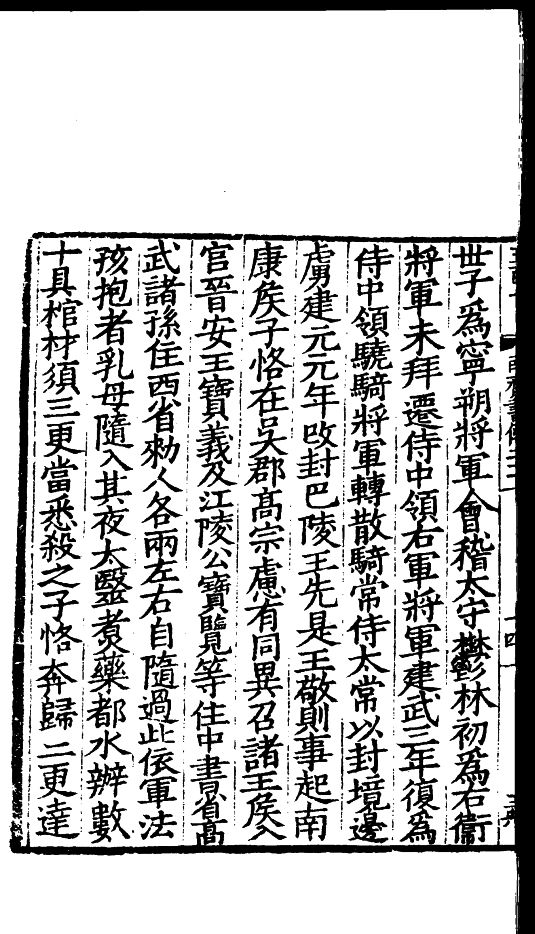 世子爲寧朔將軍會稽太守鬱林初爲右衛
將軍未拜遷侍中領右軍將軍建武三年復爲
侍中領驍騎將軍轉散騎常侍太常以封境邊
虜建元元年改封巴陵王先是王敬則事起南
康矦子恪在吳郡高宗慮有同異召諸王矦入
官晉安王寶義及江陵公寶覽等住中書省高
武諸孫住西省勑人各兩左右自隨過此依軍法
孩抱者乳母隨入其夜太醫煑藥都水辦數
十具棺材須三更當悉殺之子恪奔歸二更達